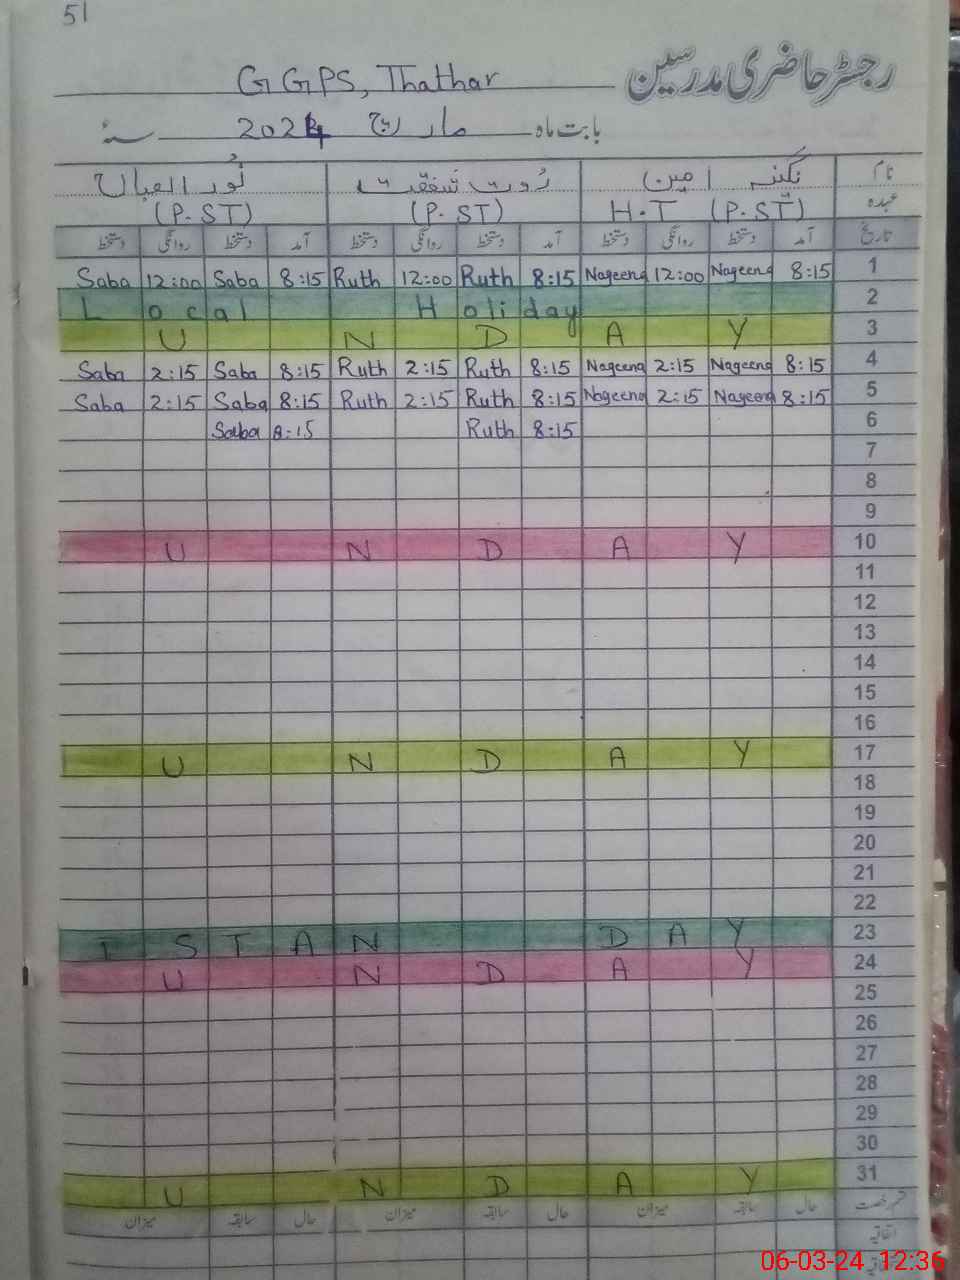 51
رجسٹر حاضری مدرسین GGPS, Thathar
بابت ماہ مارچ 2024 سنہ
نام نگینہ امین رُوت شفقت نور العباں
عہدہ H.T (P.ST) (P.ST) (P.ST)
تاریخ آمد دستخط روانگی دستخط آمد دستخط روانگی دستخط آمد دستخط روانگی دستخط
Saba 12:00 Saba 8:15 Ruth 12:00 Ruth 8:15 Nageena 12:00 Nageena 8:15 1
Local Holiday 2
U N D A Y 3
Saba 2:15 Saba 8:15 Ruth 2:15 Ruth 8:15 Nageena 2:15 Nageena 8:15 4
Saba 2:15 Saba 8:15 Ruth 2:15 Ruth 8:15 Nageena 2:15 Nageena 8:15 5
Saba 8:15 Ruth 8:15 6
7
8
9
U N D A Y 10
11
12
13
14
15
16
U N D A Y 17
18
19
20
21
22
I S T A N D A Y 23
U N D A Y 24
25
26
27
28
29
30
U N D A Y 31
حال سابقہ میزان حال سابقہ میزان حال سابقہ میزان
اتفاقیہ
06-03-24 12:36